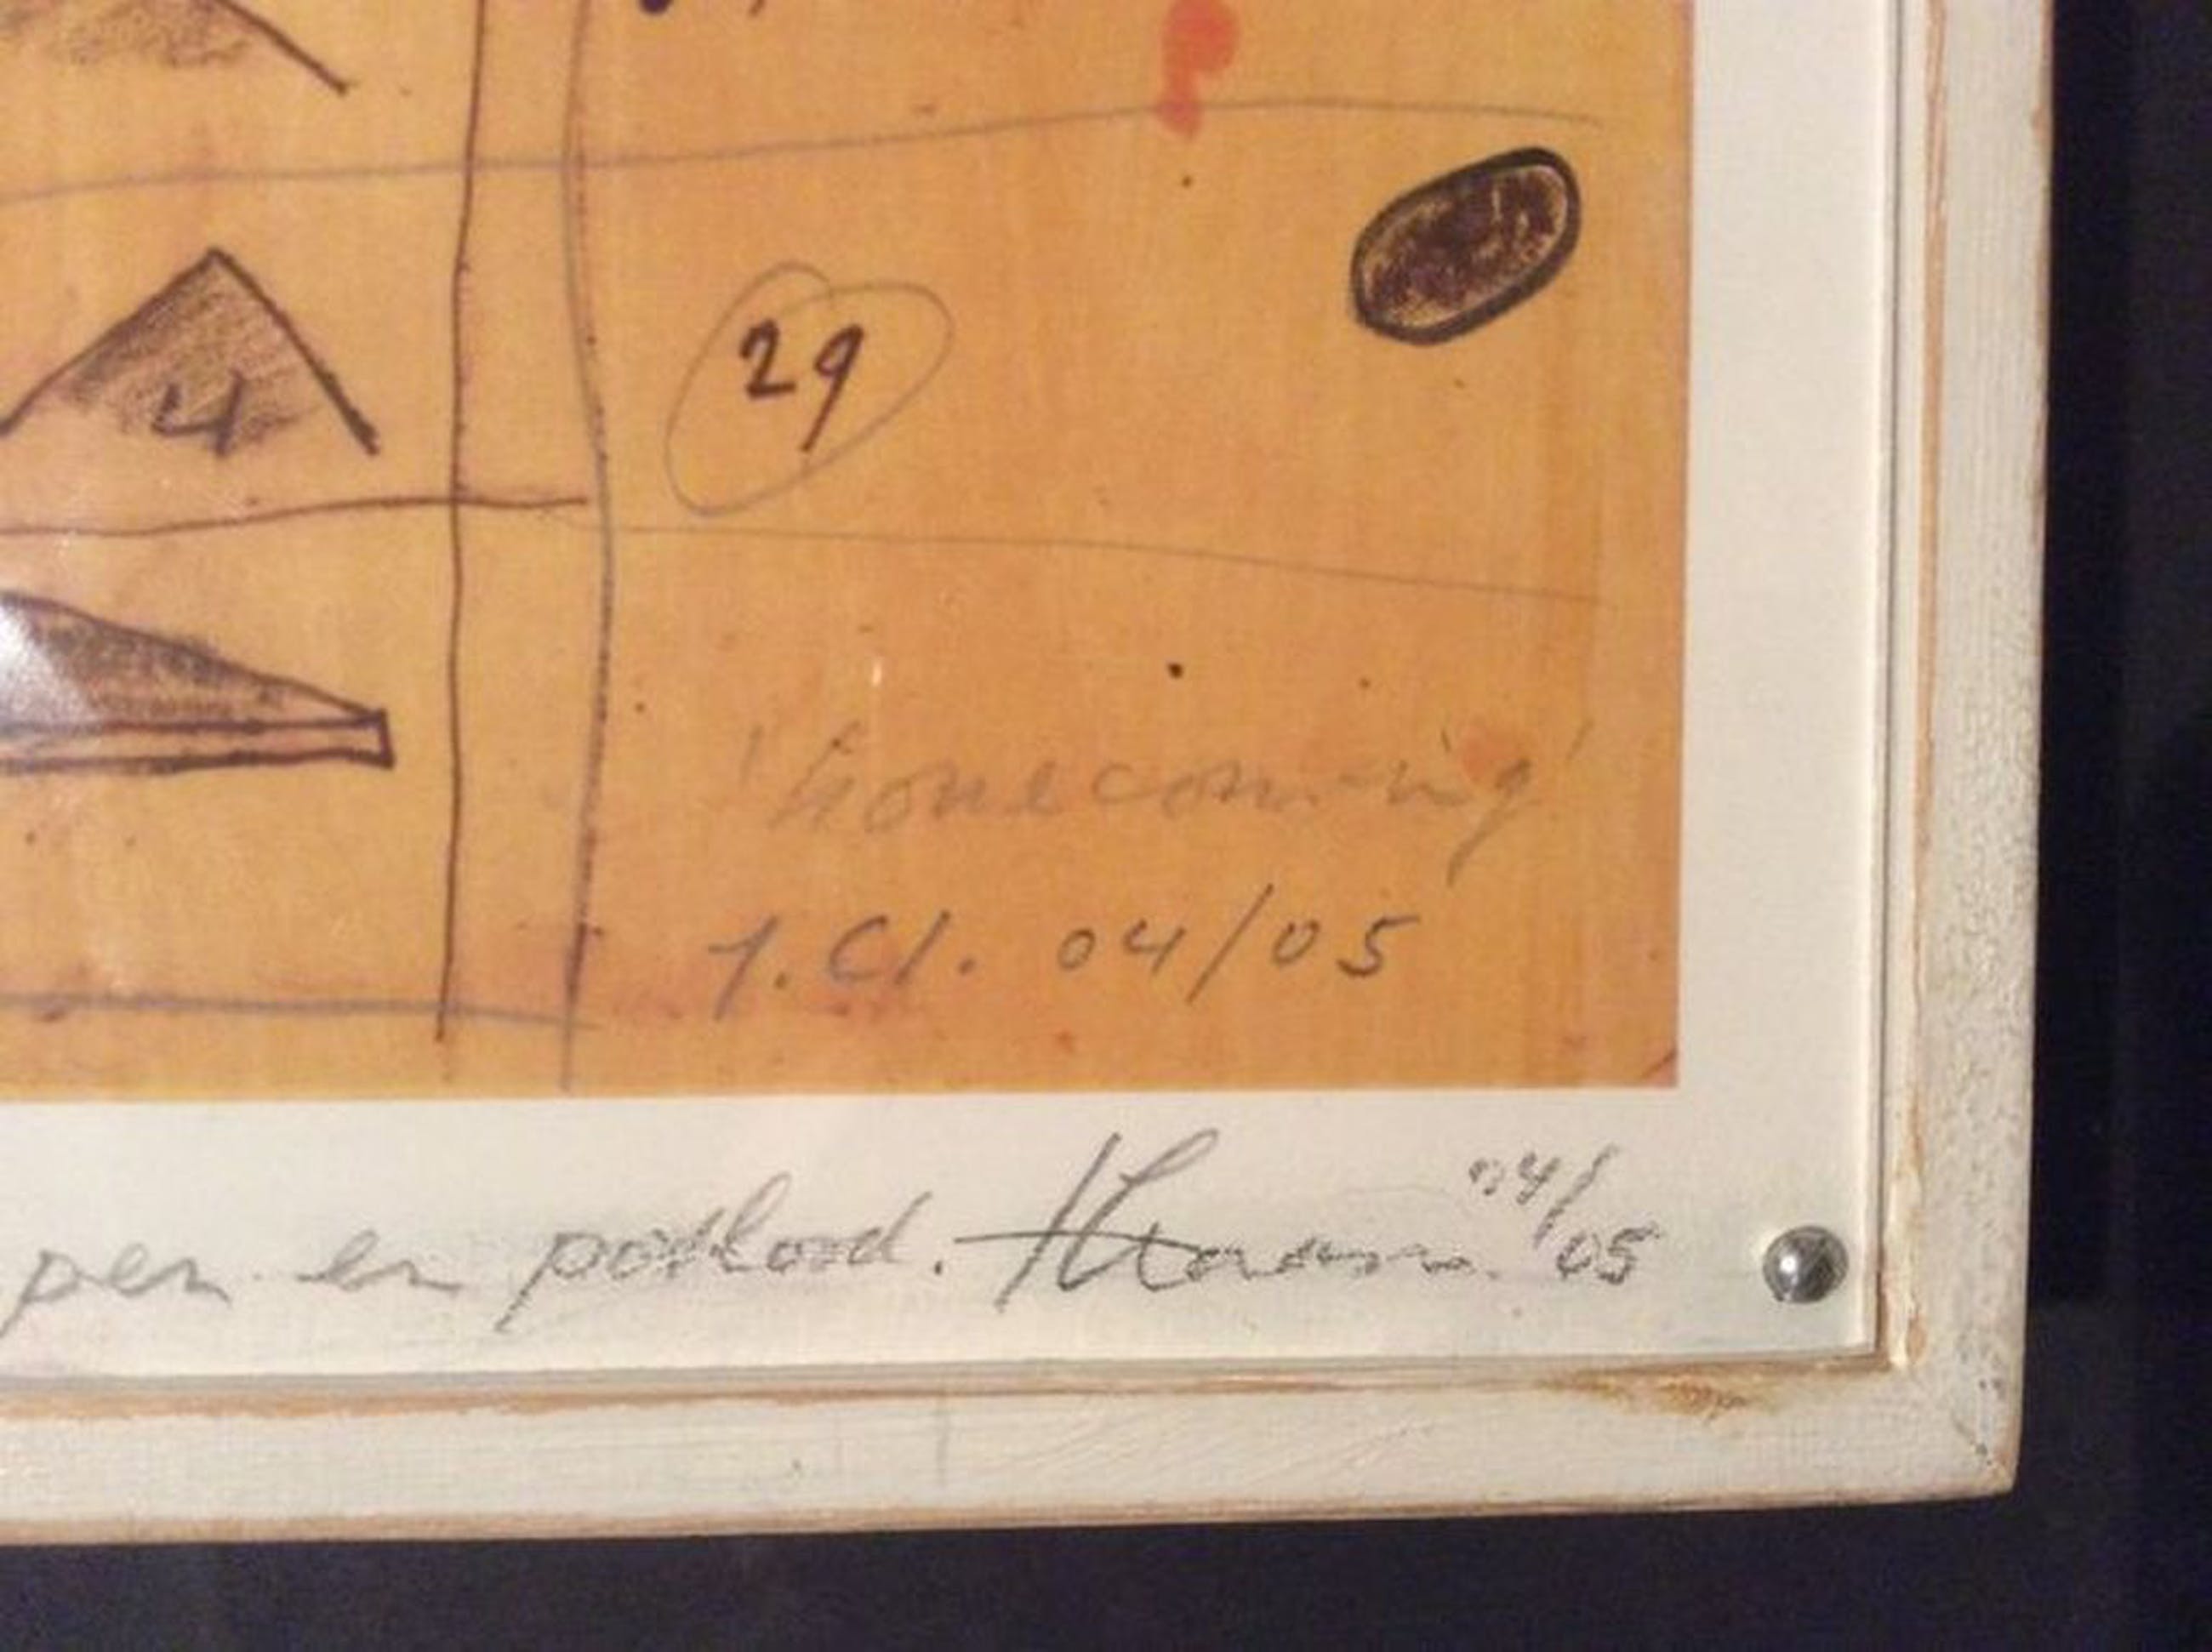 29
4
'homecoming'
J.Cl. 04/05
pen en potlood. 04/05